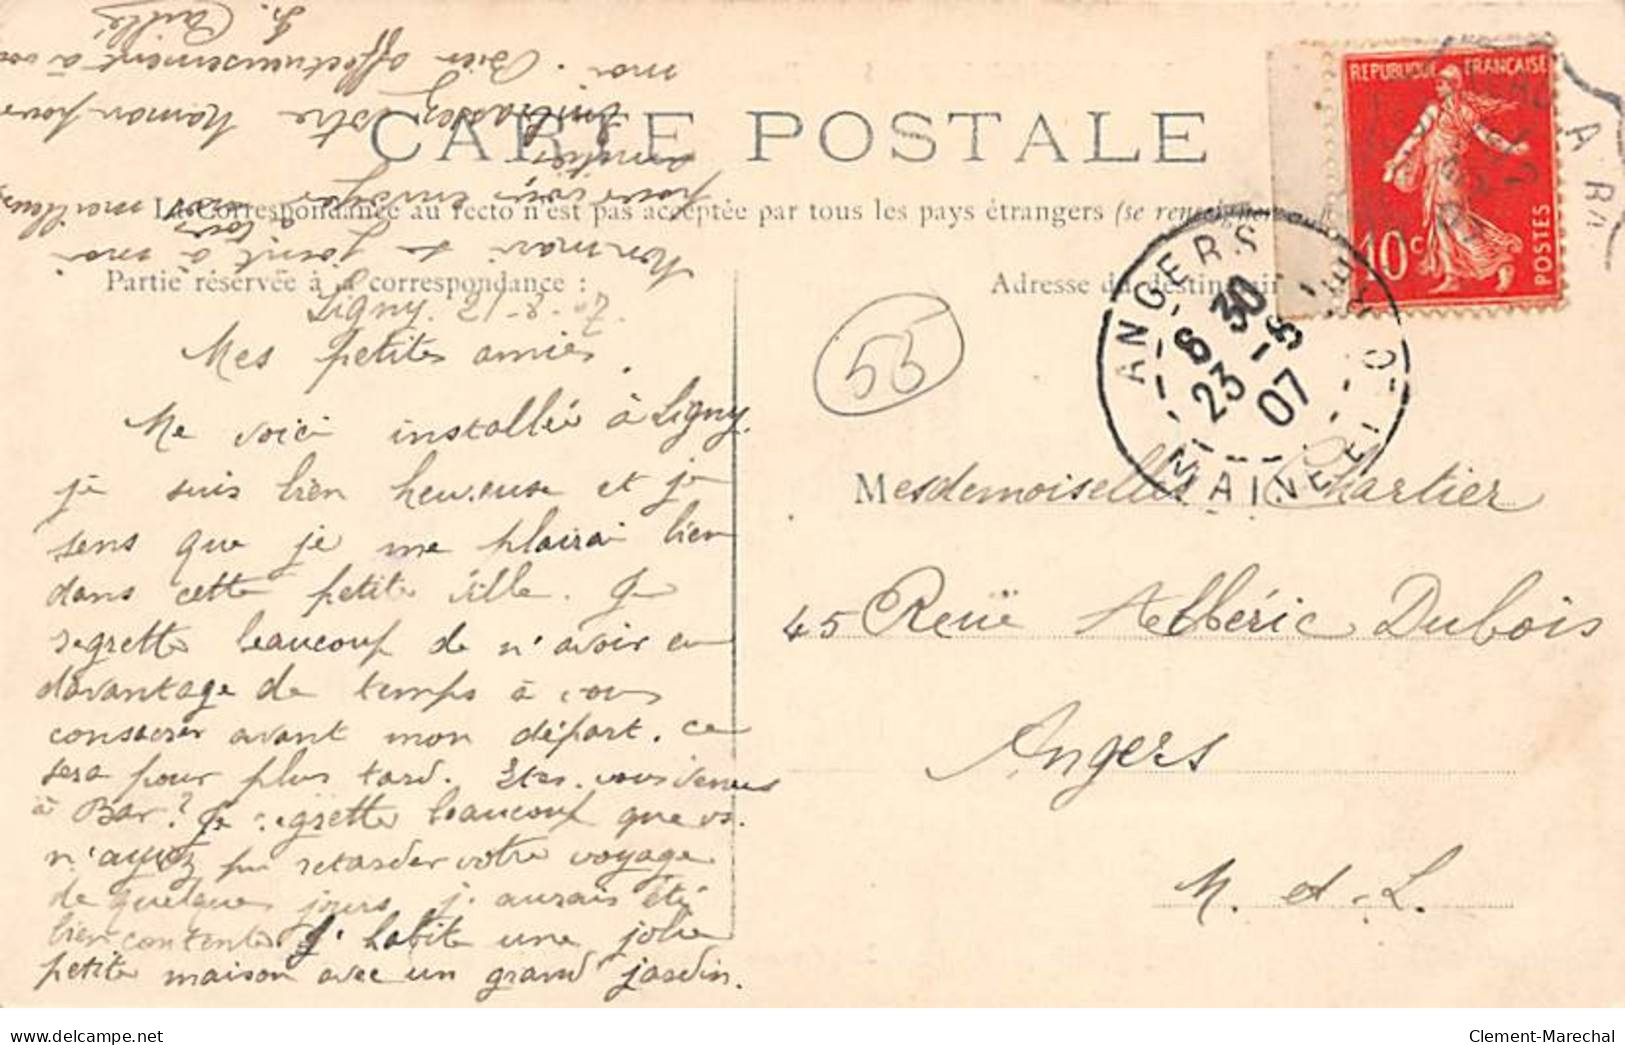 CARTE POSTALE
La Correspondance au recto n'est pas acceptée par tous les pays étrangers (se renseigner
Partie réservée à la correspondance :
Adresse du destinataire
REPUBLIQUE FRANÇAISE
10c
POSTES
ANGERS
8 30
23 - 8
07
MAINE ET LOIRE
55
Ligny. 21-8-07.
Mes petites amies,
Me voici installée à Ligny.
je suis bien heureuse et je
sens que je me plairai bien
dans cette petite ville. Je
regrette beaucoup de n'avoir eu
davantage de temps à vous
consacrer avant mon départ. ce
sera pour plus tard. Etes-vous venues
à Bar? Je regrette beaucoup que vs.
n'ayez pu retarder votre voyage
de quelques jours j'aurais été
bien contente. J'habite une jolie
petite maison avec un grand jardin.
Mon mari se joint à moi
pour vous envoyer nos meilleures
amitiés
Embrassez votre Maman pour
moi. Bien affectueusement à vous
Caillé
Mesdemoiselles Chartier
45 Reuë Albéric Dubois
Angers
M. et-L.
delcampe.net
Clement-Marechal